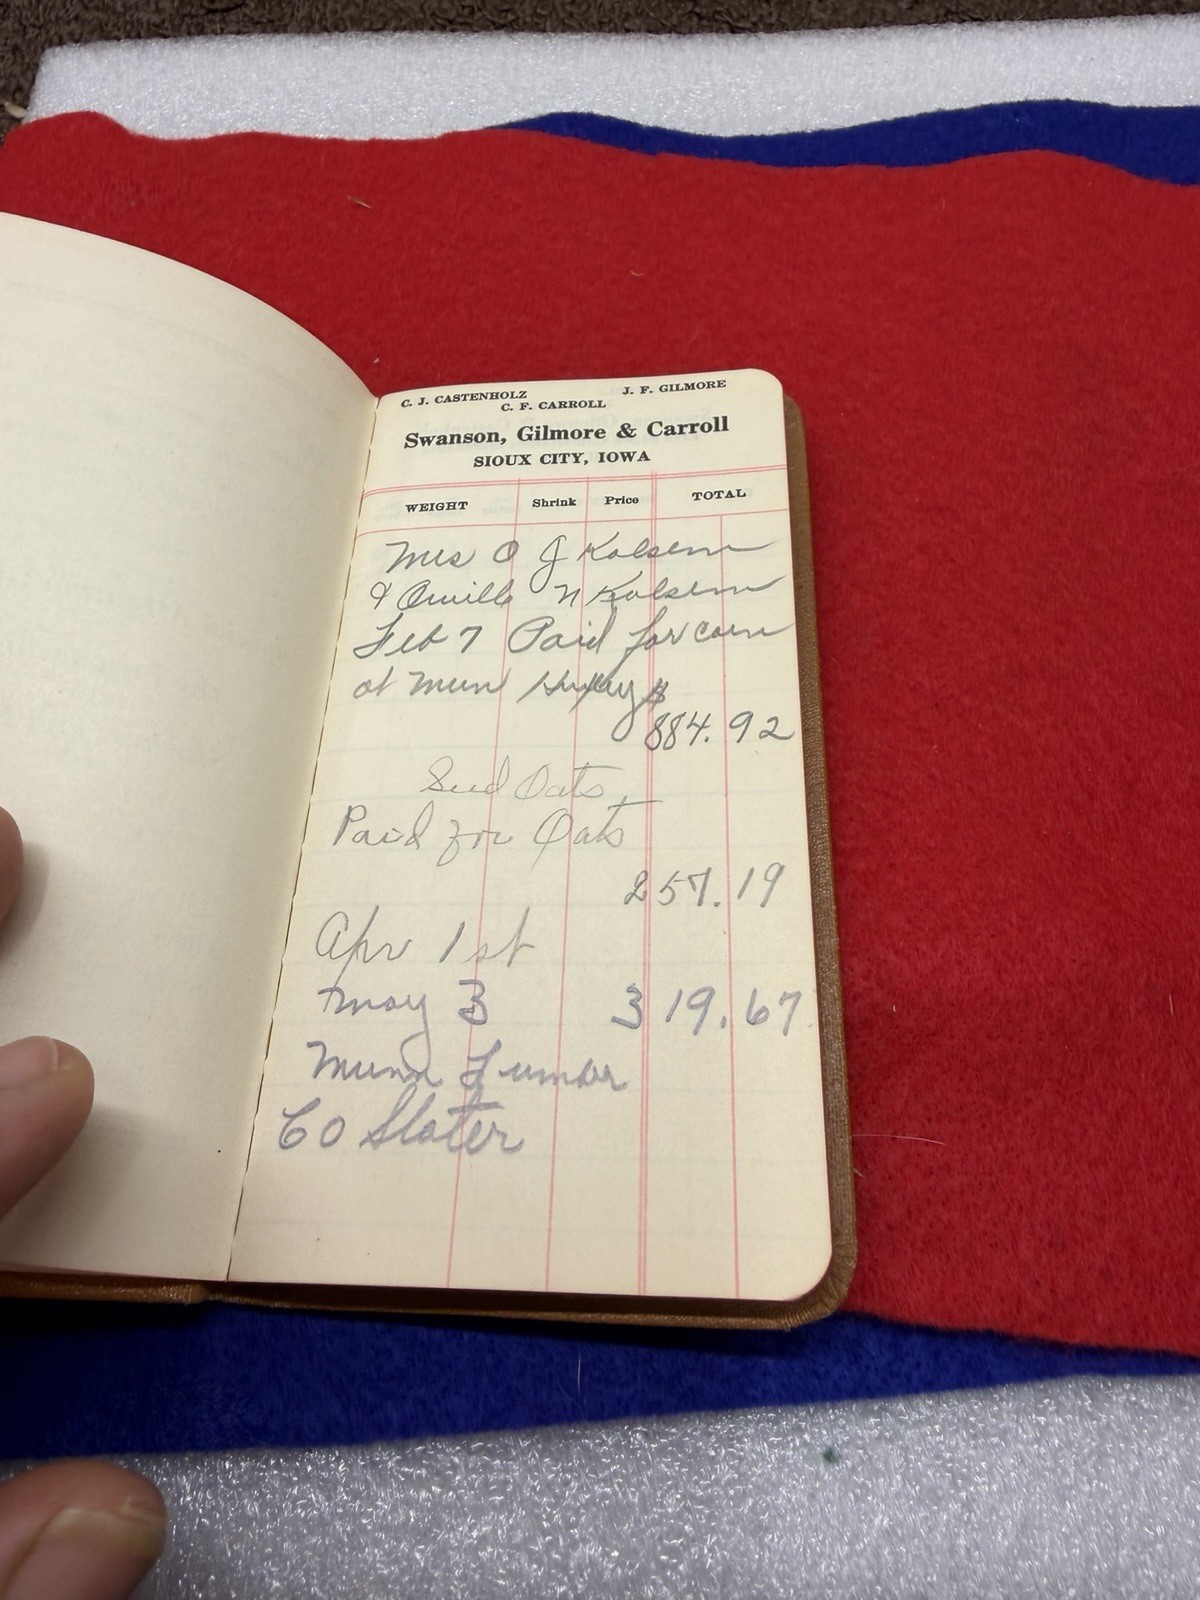 C. J. CASTENHOLZ J. F. GILMORE
C. F. CARROLL
Swanson, Gilmore & Carroll
SIOUX CITY, IOWA
WEIGHT Shrink Price TOTAL
Mrs O J Kalsem
& Orville N Kalsem
Feb 7 Paid for corn
at Munn Huxley $
884.92
Seed Oats
Paid for Oats
257.19
Apr 1st
May 3 319.67
Munn Lumber
CO Slater